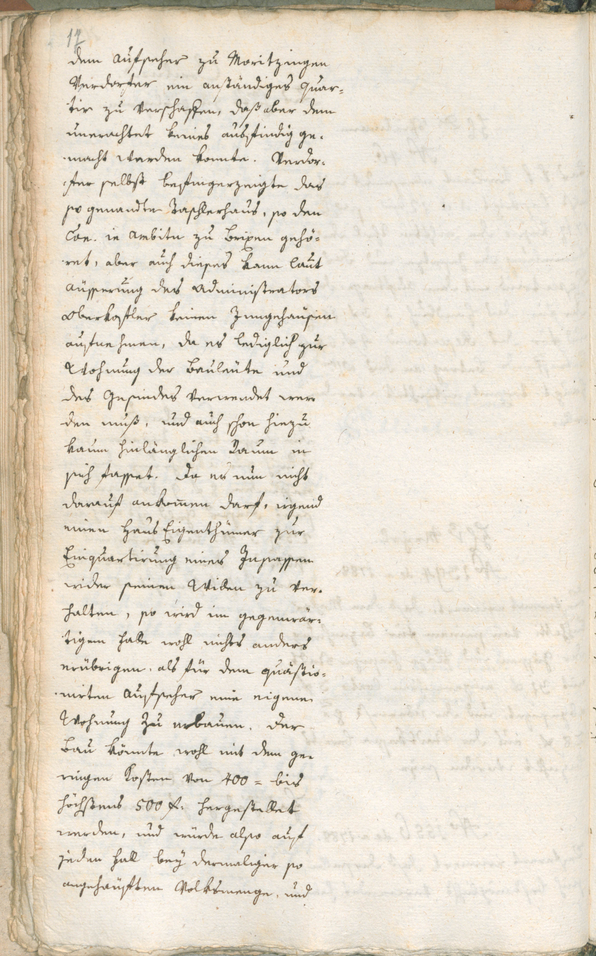 12
dem Aufseher zu Moritzingen
Verdorfer ein anständiges Quar-
tir zu verschaffen, daß aber dem
unerachtet keines ausfindig ge-
macht werden konnte. Verdor-
fer selbst befingerzeigte das
so genandte Taschlerhaus, so den
Con. in Ambitu zu Brixen gehö-
ret, aber auch dieses kann laut
Äusserung des Administrators
Oberkofler keinen Inngehäusen
aufnehmen, da es lediglich zur
Wohnung der Bauleute und
des Gesindes verwendet wer-
den muß, und auch schon hiezu
kaum hinlänglichen Raum in
sich fasset. Da es nun nicht
darauf ankom̅en darf, irgend
einen Haus Eigenthümer zur
Einquartirung eines Insassen
wider seinen Willen zu ver-
halten, so wird im gegenwär-
tigem Falle wohl nichts anders
erübrigen, als für dem quästio-
nirten Aufseher eine eigene
Wohnung zu erbauen. Der
Bau könnte wohl mit dem ge-
ringen Kosten von 400 = bis
höchstens 500 f. hergestellet
werden, und würde also auf
jeden Fall bey dermaliger so
angehäuften Volksmenge, und